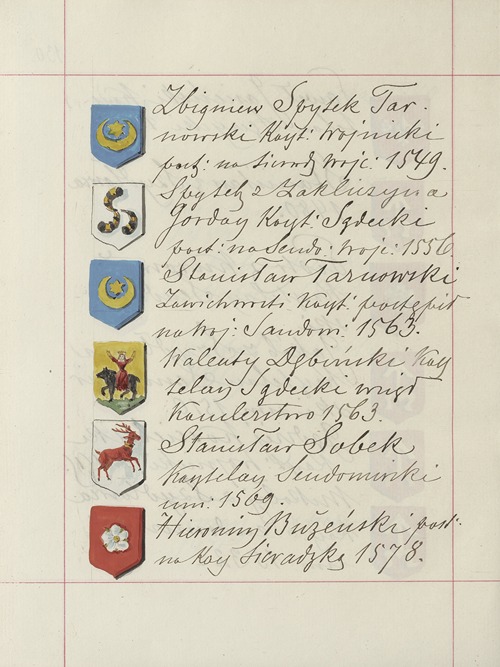 Zbigniew Spytek Tar-
nowski Kaszt: Woynicki
postą: na Sieradz Woje: 1549.
Spytek z Zakliczyna
Jordan Kaszt: Sądecki
post: na Sendo: Woje: 1556.
Stanisław Tarnowski
Zawichwosti Kaszt: postąpił
na Woj: Sandom: 1563.
Walenty Dębiński Kasz
telan Sądecki wziął
Kanclerstwo 1563.
Stanisław Sobek
Kasztelan Sendomirski
um: 1569.
Hieronim Bużeński post:
na Kasz Sieradzką 1578.